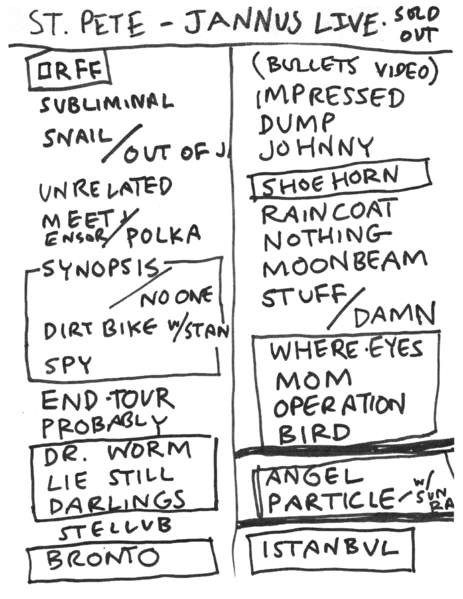 ST. PETE - JANNUS LIVE. SOLD OUT
ORFF
SUBLIMINAL
SNAIL / OUT OF J
UNRELATED
MEET ENSOR / POLKA
SYNOPSIS
/ NO ONE
DIRT BIKE W/STAN
SPY
END.TOUR
PROBABLY
DR. WORM
LIE STILL
DARLINGS
STELLUB
BRONTO
(BULLETS VIDEO)
IMPRESSED
DUMP
JOHNNY
SHOEHORN
RAINCOAT
NOTHING
MOONBEAM
STUFF / DAMN
WHERE.EYES
MOM
OPERATION
BIRD
ANGEL
PARTICLE / W/ SUN RA
ISTANBUL